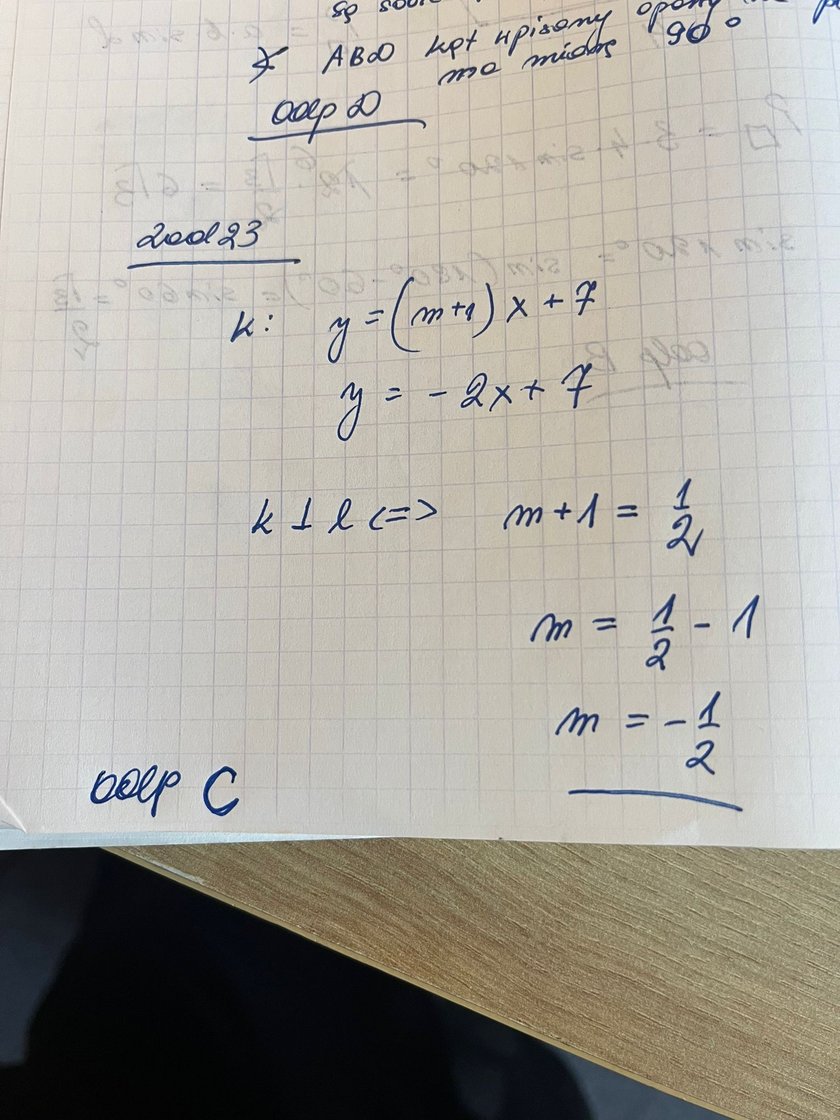 są
∢ ABD kąt wpisany oparty na
ma miarę 90°
odp D
zad 23
k: y = (m+1) x + 7
y = - 2x + 7
k ⊥ l <=> m + 1 = 1/2
m = 1/2 - 1
m = - 1/2
odp C